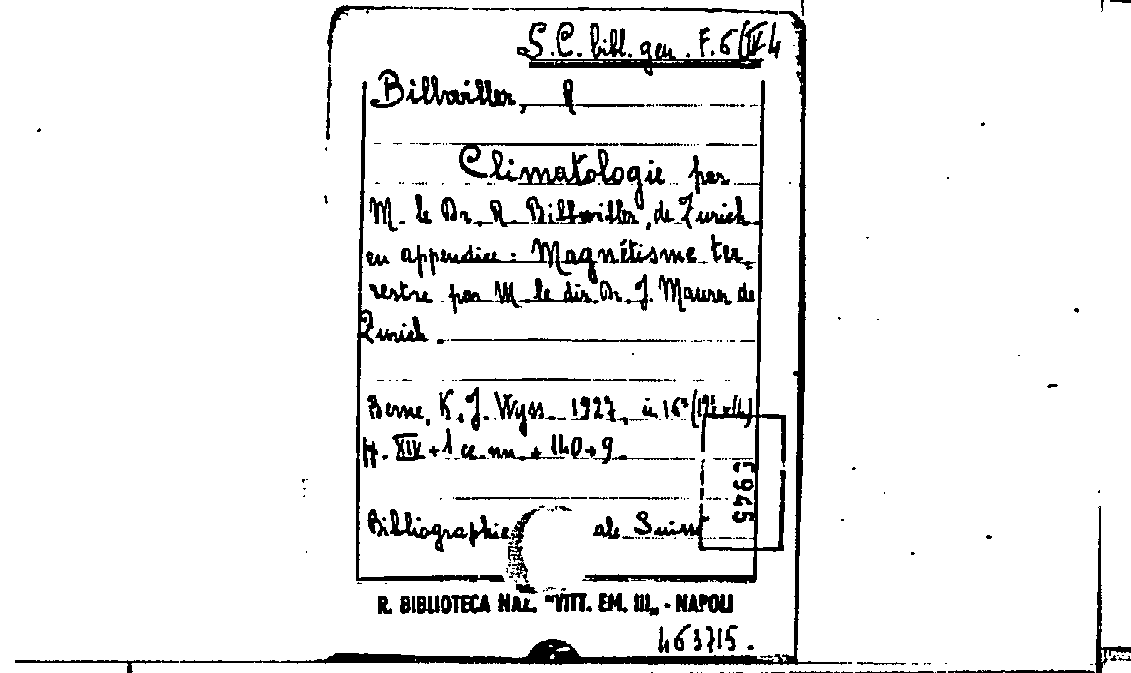 S.C. bibl. gen. F. 6 (IV 4
Billwiller, R
Climatologie par
M. le Dr. R. Billwiller, de Zurich
en appendice: Magnétisme ter-
restre par M. le dir. Dr. J. Maurer de
Zurich.
Berne, K. J. Wyss. 1927, in 16°
pp. XIV + 1 cc. nn. + 140 + 9.
Bibliographie ale Suisse
5945
R. BIBLIOTECA NAZ. "VITT. EM. III„ - NAPOLI
463715.